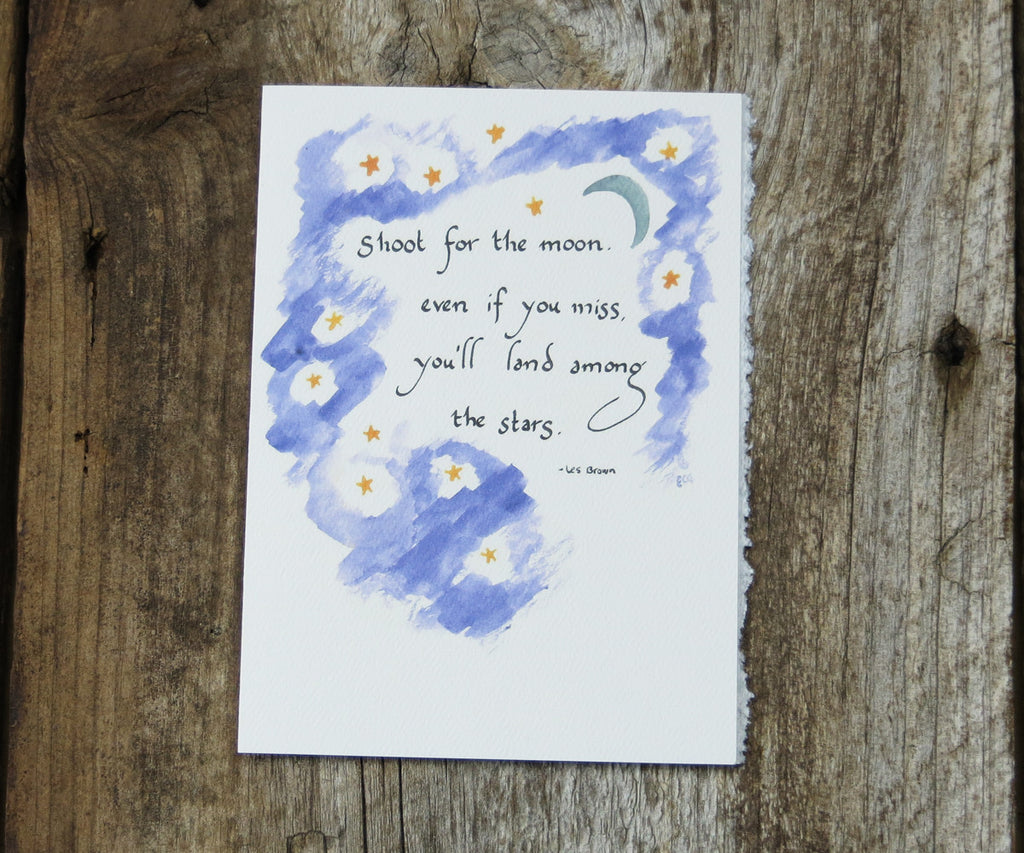 Shoot for the moon.
even if you miss,
you'll land among
the stars.
- Les Brown